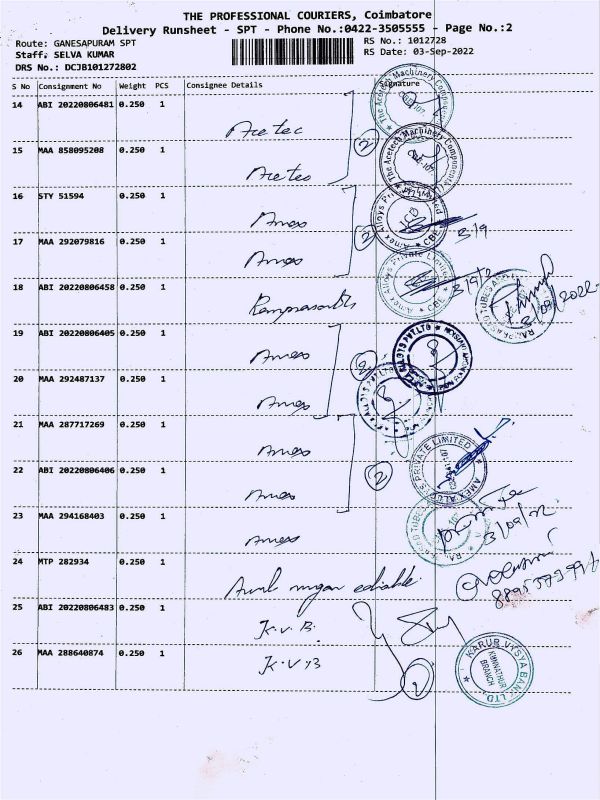 THE PROFESSIONAL COURIERS, Coimbatore
Delivery Runsheet - SPT - Phone No.:0422-3505555 - Page No.:2
Route: GANESAPURAM SPT
RS No.: 1012728
Staff: SELVA KUMAR
RS Date: 03-Sep-2022
DRS No.: DCJB101272802
S No Consignment No Weight PCS Consignee Details Signature
14 ABI 20220806481 0.250 1 Acetec
The Acetech Machinery Components
2
15 MAA 858095208 0.250 1 Acetec
The Acetech Machinery Components
16 STY 51594 0.250 1 Amex
Amex Alloys Private Limited CBE
2
3/9
17 MAA 292079816 0.250 1 Amex
Amex Alloys Private Limited CBE
3/9/2
18 ABI 20220806458 0.250 1
3/09/2022
19 ABI 20220806405 0.250 1 Amex
2
20 MAA 292487137 0.250 1 Amex
21 MAA 287717269 0.250 1 Amex
AMEX ALLOYS PRIVATE LIMITED
22 ABI 20220806406 0.250 1 Amex
2
23 MAA 294168403 0.250 1 Amex
3/09/22
24 MTP 282934 0.250 1
25 ABI 20220806483 0.250 1 K.V.B.
26 MAA 288640874 0.250 1 K.V.B
2
KARUR VYSYA BANK LTD.
KUNNATHUR
BRANCH